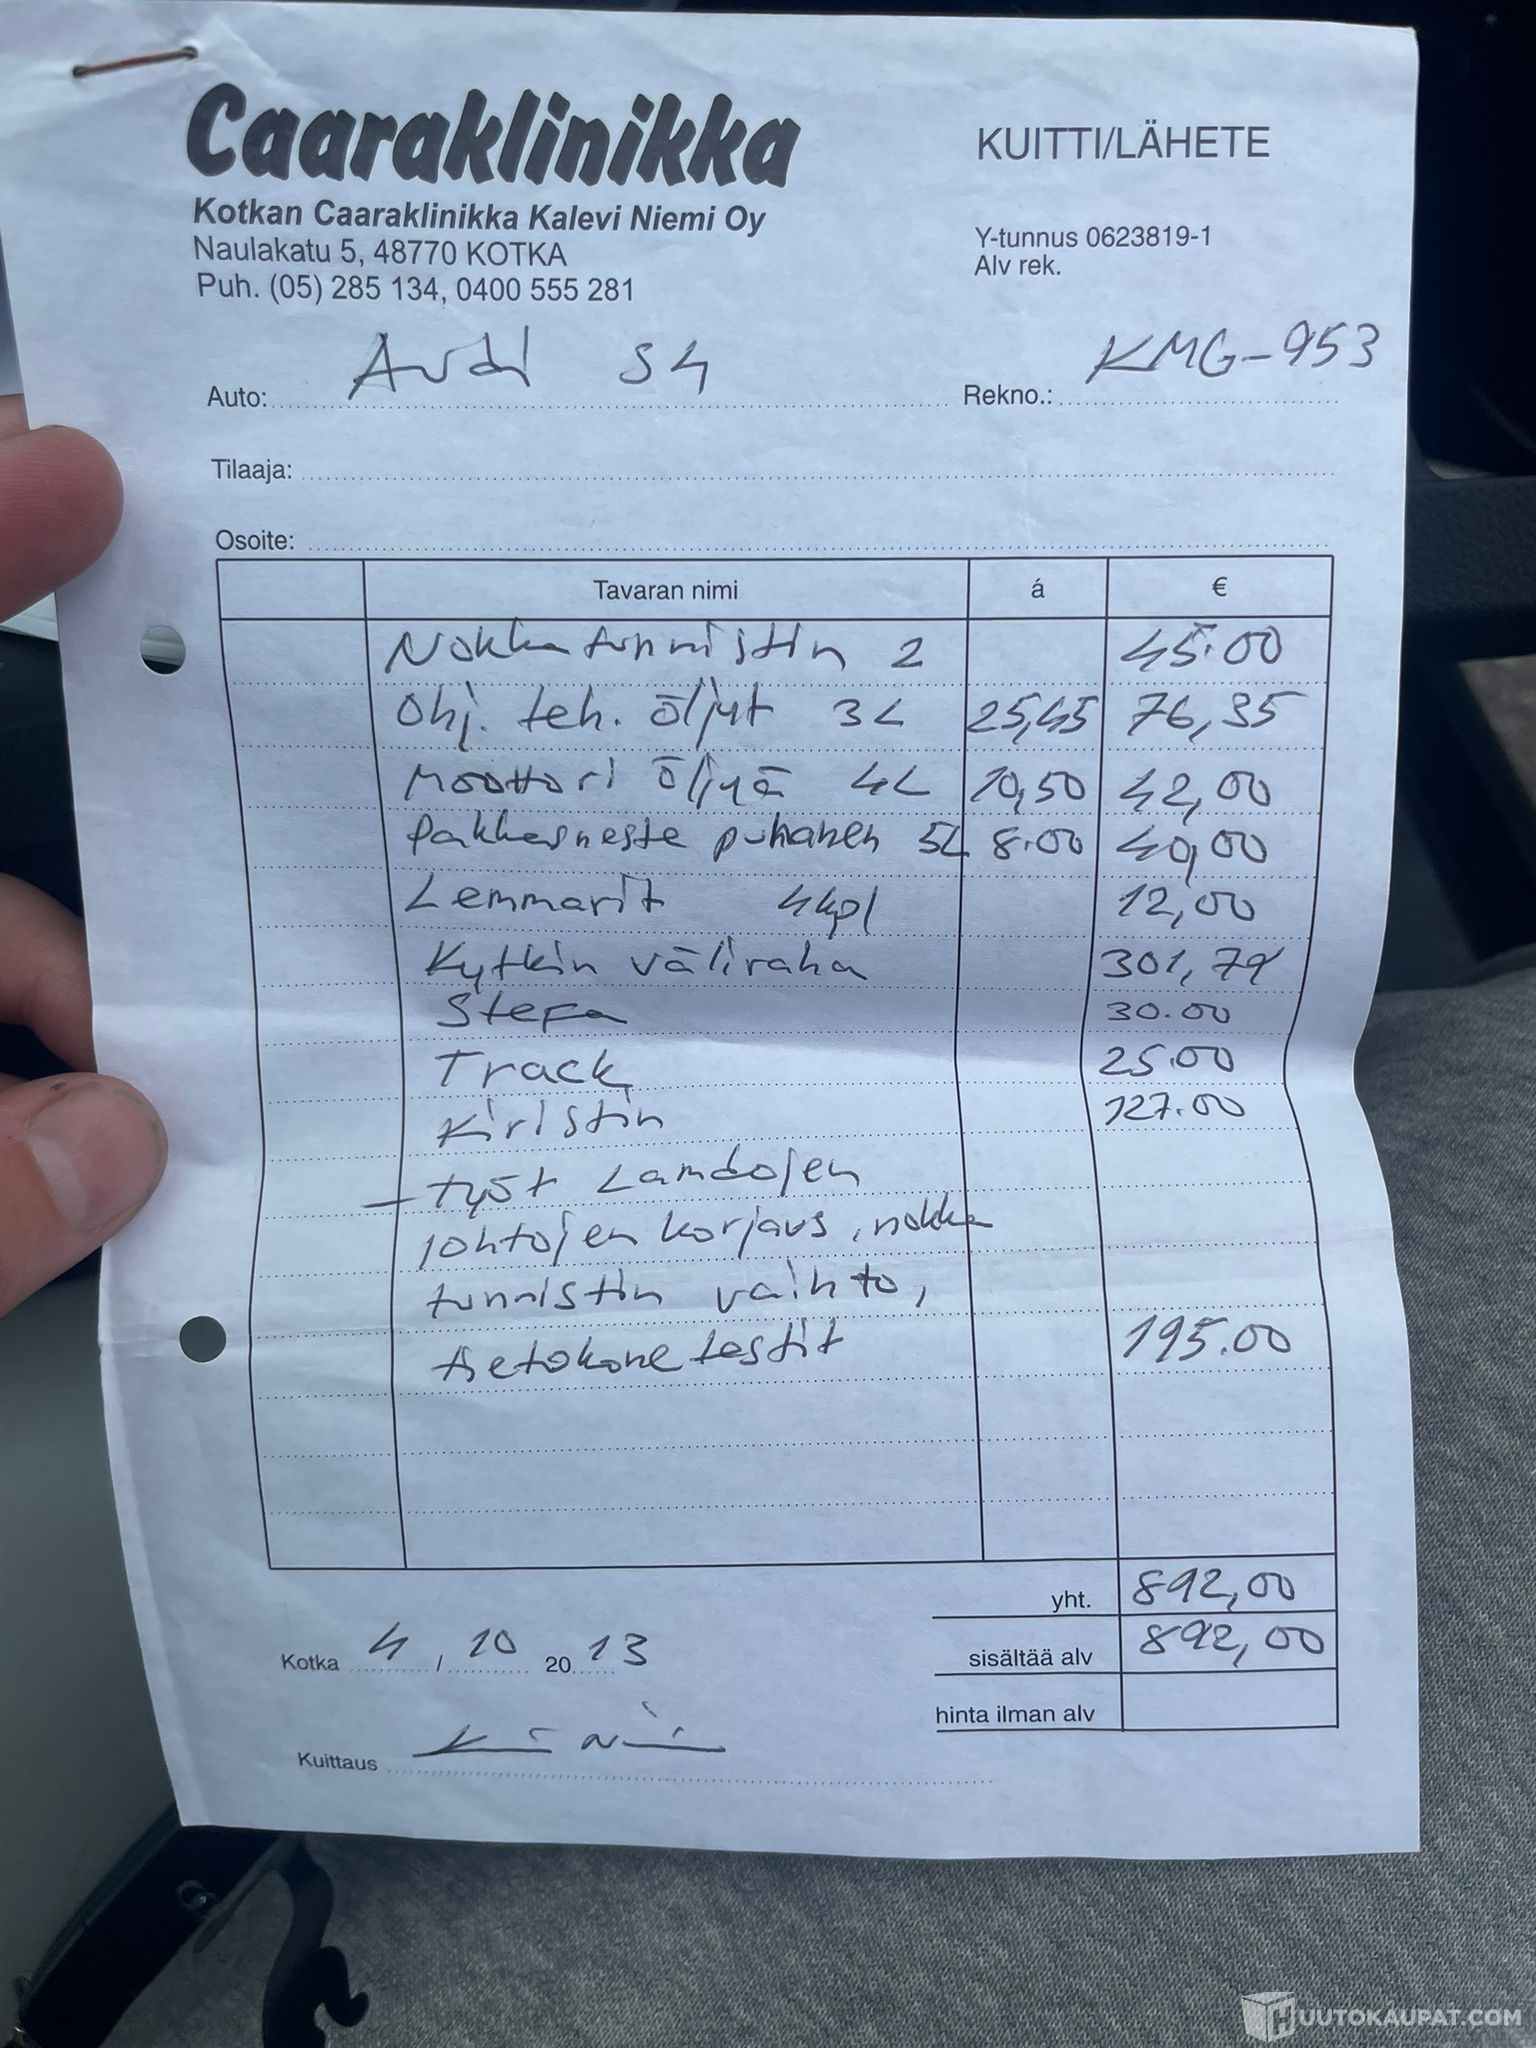 Caaraklinikka
KUITTI/LÄHETE
Kotkan Caaraklinikka Kalevi Niemi Oy
Naulakatu 5, 48770 KOTKA
Puh. (05) 285 134, 0400 555 281
Y-tunnus 0623819-1
Alv rek.
Auto: Audi S4
Rekno.: KMG-953
Tilaaja:
Osoite:
Tavaran nimi á €
Nokkatunnistin 2 45.00
Ohj. teh. öljyt 3L 25,45 76,35
Moottori öljyä 4L 10,50 42,00
Pakkasneste punanen 5L 8.00 40,00
Lemmarit 4kpl 12,00
Kytkin väliraha 301,79
Stefa 30.00
Track 25.00
Kiristin 127.00
- työt Lamdojen
johtojen korjaus, nokka
tunnistin vaihto,
tietokone testit 195.00
yht. 892,00
sisältää alv 892,00
hinta ilman alv
Kotka 4 / 10 2013
Kuittaus
HUUTOKAUPAT.COM